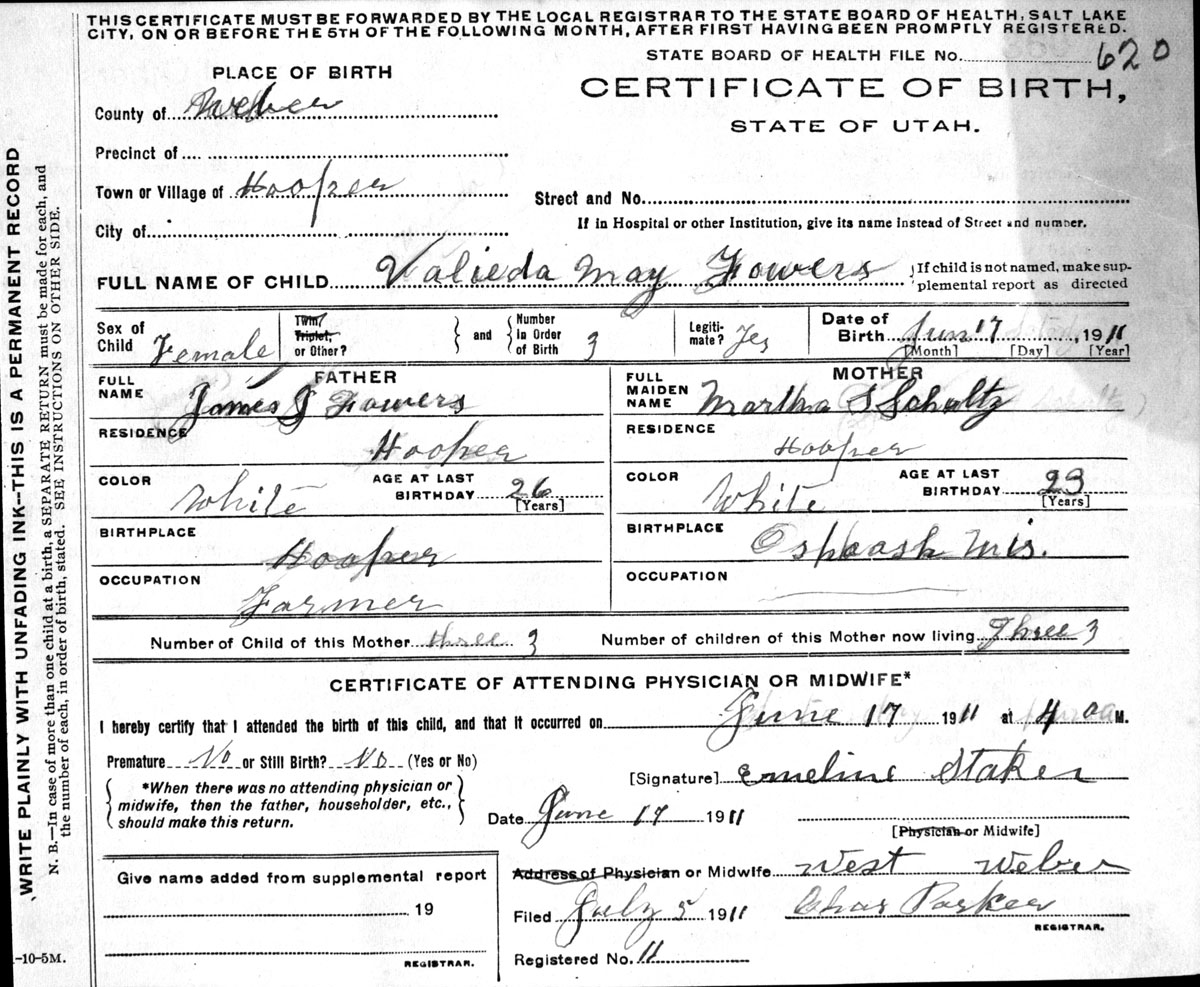 THIS CERTIFICATE MUST BE FORWARDED BY THE LOCAL REGISTRAR TO THE STATE BOARD OF HEALTH, SALT LAKE
CITY, ON OR BEFORE THE 5TH OF THE FOLLOWING MONTH, AFTER FIRST HAVING BEEN PROMPTLY REGISTERED.
STATE BOARD OF HEALTH FILE No. 620
PLACE OF BIRTH
CERTIFICATE OF BIRTH,
STATE OF UTAH.
County of Weber
Precinct of
Town or Village of Hooper
Street and No.
City of
If in Hospital or other Institution, give its name instead of Street and number.
FULL NAME OF CHILD Valieda May Fowers
If child is not named, make sup-
plemental report as directed
Sex of Child Female
Twin, Triplet, or Other?
and
Number in Order of Birth 3
Legiti-mate? Yes
Date of Birth Jun 17, 1911
[Month] [Day] [Year]
FATHER
FULL NAME James J Fowers
RESIDENCE Hooper
COLOR White AGE AT LAST BIRTHDAY 26 [Years]
BIRTHPLACE Hooper
OCCUPATION Farmer
MOTHER
FULL MAIDEN NAME Martha S Schultz
RESIDENCE Hooper
COLOR White AGE AT LAST BIRTHDAY 23 [Years]
BIRTHPLACE Ospkosh Wis.
OCCUPATION
Number of Child of this Mother three 3 Number of children of this Mother now living Three 3
CERTIFICATE OF ATTENDING PHYSICIAN OR MIDWIFE*
I hereby certify that I attended the birth of this child, and that it occurred on June 17 1911 at 4 00 a M.
Premature No or Still Birth? No (Yes or No)
*When there was no attending physician or
midwife, then the father, householder, etc.,
should make this return.
[Signature] Emeline Staker
Date June 17 1911
[Physician or Midwife]
Address of Physician or Midwife West Weber
Filed July 5 1911 Chas Parker
REGISTRAR.
Registered No. 11
Give name added from supplemental report
19
REGISTRAR.
WRITE PLAINLY WITH UNFADING INK--THIS IS A PERMANENT RECORD
N. B.—In case of more than one child at a birth, a SEPARATE RETURN must be made for each, and
the number of each, in order of birth, stated. SEE INSTRUCTION ON OTHER SIDE.
-10-5M.